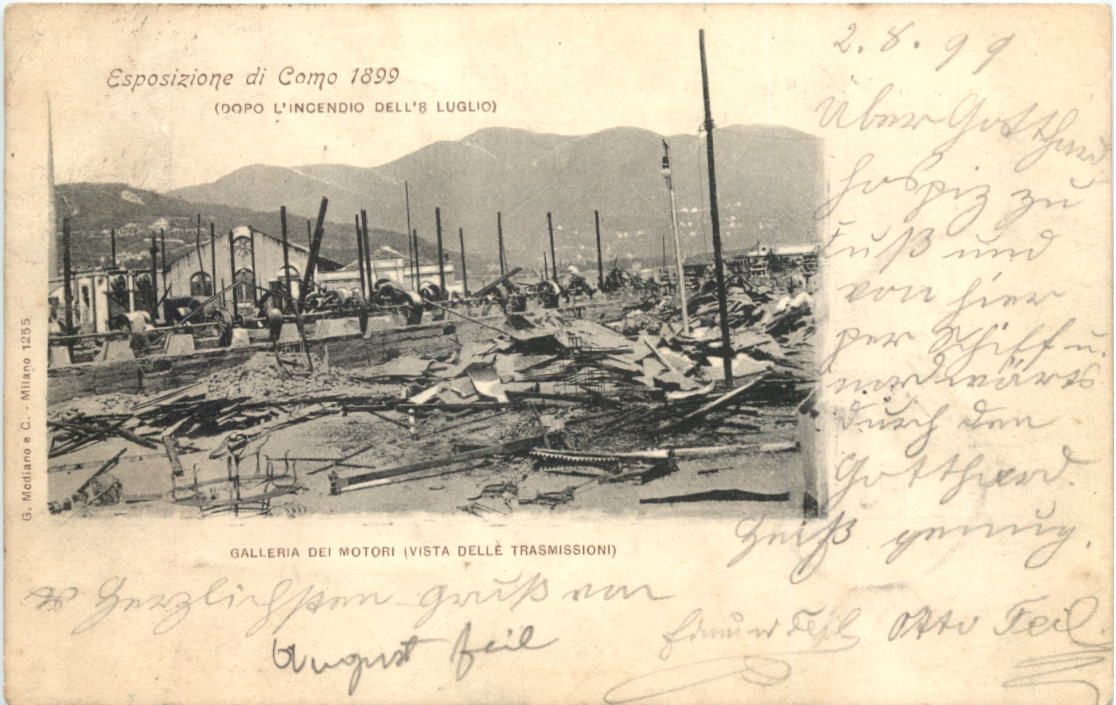 Esposizione di Como 1899
(DOPO L'INCENDIO DELL'8 LUGLIO)
G. Modiano e C. - Milano 1255
GALLERIA DEI MOTORI (VISTA DELLE TRASMISSIONI)
2.8.99
Über Gotthard
hospiz zu
Fuß und
von hier
per Schiff u.
nordwärts
durch den
Gotthard.
Heiß genug.
Herzlichsten Gruß von
August Feil
Otto Feil